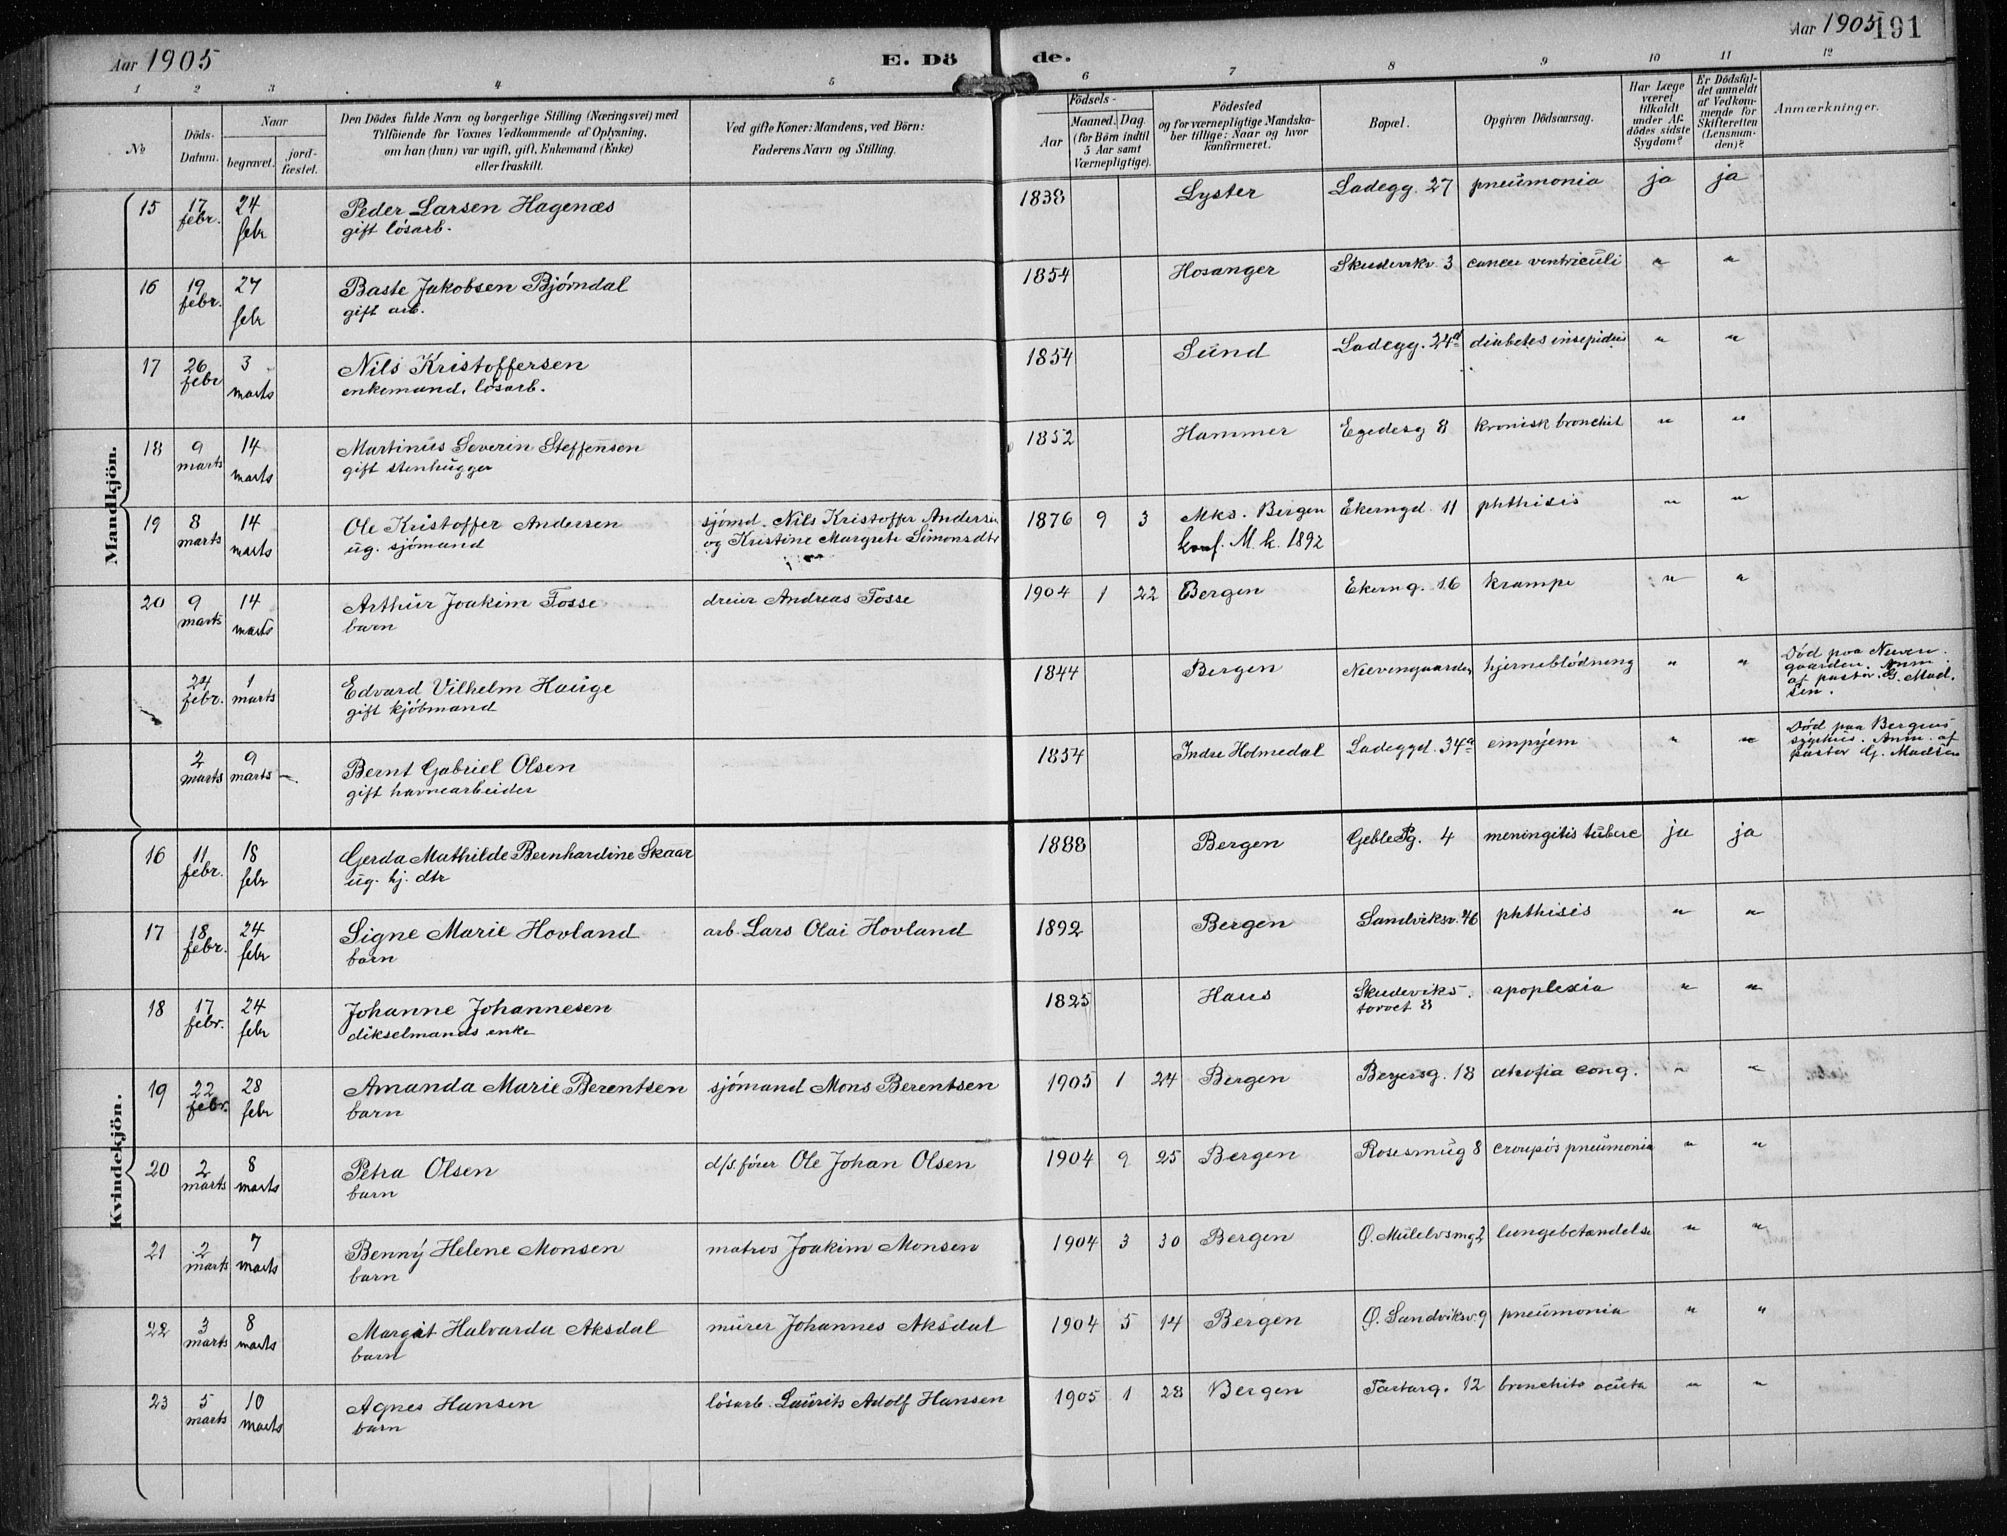 Aar 1905
E. Dö
de.
Aar 1905
191
1 2 3 4 5 6 7 8 9 10 11 12
№
Döds-
Datum.
Naar
begravet.
jord-
fæstet.
Den Dödes fulde Navn og borgerlige Stilling (Næringsvei) med
Tilföiende for Voxnes Vedkommende af Oplysning,
om han (hun) var ugift, gift, Enkemand (Enke)
eller fraskilt.
Ved gifte Koner: Mandens, ved Börn:
Faderens Navn og Stilling.
Födsels-
Aar
Maaned. Dag.
(for Börn indtil
5 Aar samt
Værnepligtige).
Födested
og for værnepligtige Mandska-
ber tillige: Naar og hvor
konfirmeret.
Bopæl.
Opgiven Dödsaarsag.
Har Læge
været
tilkaldt
under Af-
dödes sidste
Sygdom?
Er Dödsfal-
det anmeldt
af Vedkom-
mende for
Skifteretten
(Lensman-
den)?
Anmærkninger.
Mandkjön.
15 17 febr. 24 febr Peder Larsen Hagenæs 1838 Lyster Ladegg. 27 pneumonia ja ja
gift lösarb.
16 19 febr. 27 febr Baste Jakobsen Bjørndal 1854 Hosanger Skudevikv. 3 cancer ventriculi " "
gift arb.
17 26 febr 3 marts Nils Kristoffersen 1854 Sund Ladegg. 24a diabetes insipidus " "
enkemand, lösarb.
18 9 marts 14 marts Martinus Severin Steffensen 1852 Hammer Egedesg 8 kronisk bronchit " "
gift stenhugger
19 8 marts 14 marts Ole Kristoffer Andersen sjömd. Nils Kristoffer Andersen 1876 9 3 Mks. Bergen Ekerngd. 11 phthisis " "
ug. sjömand og Kristine Margrete Simonsdtr konf. M.k. 1892
20 9 marts 14 marts Arthur Joakim Fosse dreier Andreas Fosse 1904 1 22 Bergen Ekerng. 16 krampe " "
barn
24 febr. 1 marts Edvard Vilhelm Hauge 1844 Bergen Nevengaarden hjerneblödning " " Død paa Neven
gift kjöbmand gaarden. Anm.
af pastor G. Mad.
sen.
2 marts 9 marts Bernt Gabriel Olsen 1854 Indre Holmedal Ladeggd. 34a empyem " " Død paa Bergens
gift havnearbeider sygehus. Anm. af
pastor G. Madsen
Kvindekjön.
16 11 febr. 18 febr Gerda Mathilde Bernhardine Skaar 1888 Bergen Geble Pg. 4 meningitis tuberc ja ja
ug. hj. dtr
17 18 febr. 24 febr Signe Marie Hovland arb. Lars Olai Hovland 1892 Bergen Sandviksv. 46 phthisis " "
barn
18 17 febr. 24 febr Johanne Johannesen 1825 Haus Skudeviks. apoplexia " "
dikselmands enke torvet 8
19 22 febr. 28 febr Amanda Marie Berentsen sjömand Mons Berentsen 1905 1 24 Bergen Beyersg. 18 atrofia cong. " "
barn
20 2 marts 8 marts Petra Olsen d/s. förer Ole Johan Olsen 1904 9 25 Bergen Rosesmug 8 croupös pneumonia " "
barn
21 2 marts 7 marts Benny Helene Monsen matros Joakim Monsen 1904 3 30 Bergen Ø. Mülelvsmg 2 lungebetændelse " "
barn
22 3 marts 8 marts Margit Halvarda Aksdal murer Johannes Aksdal 1904 5 14 Bergen Ø. Sandviksv. 9 pneumonia " "
barn
23 5 marts 10 marts Agnes Hansen lösarb. Laurits Adolf Hansen 1905 1 28 Bergen Tartarg. 12 bronchitis acuta " "
barn